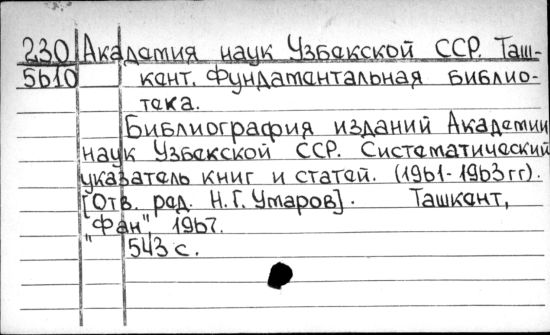 230 Академия наук Узбекской ССР. Таш-
5610 кент. Фундаментальная библио-
тека.
Библиография изданий Академии
наук Узбекской ССР. Систематический
указатель книг и статей. (1961-1963гг).
[Отв. ред. Н.Г. Умаров]. Ташкент,
"Фан", 1967.
543 с.